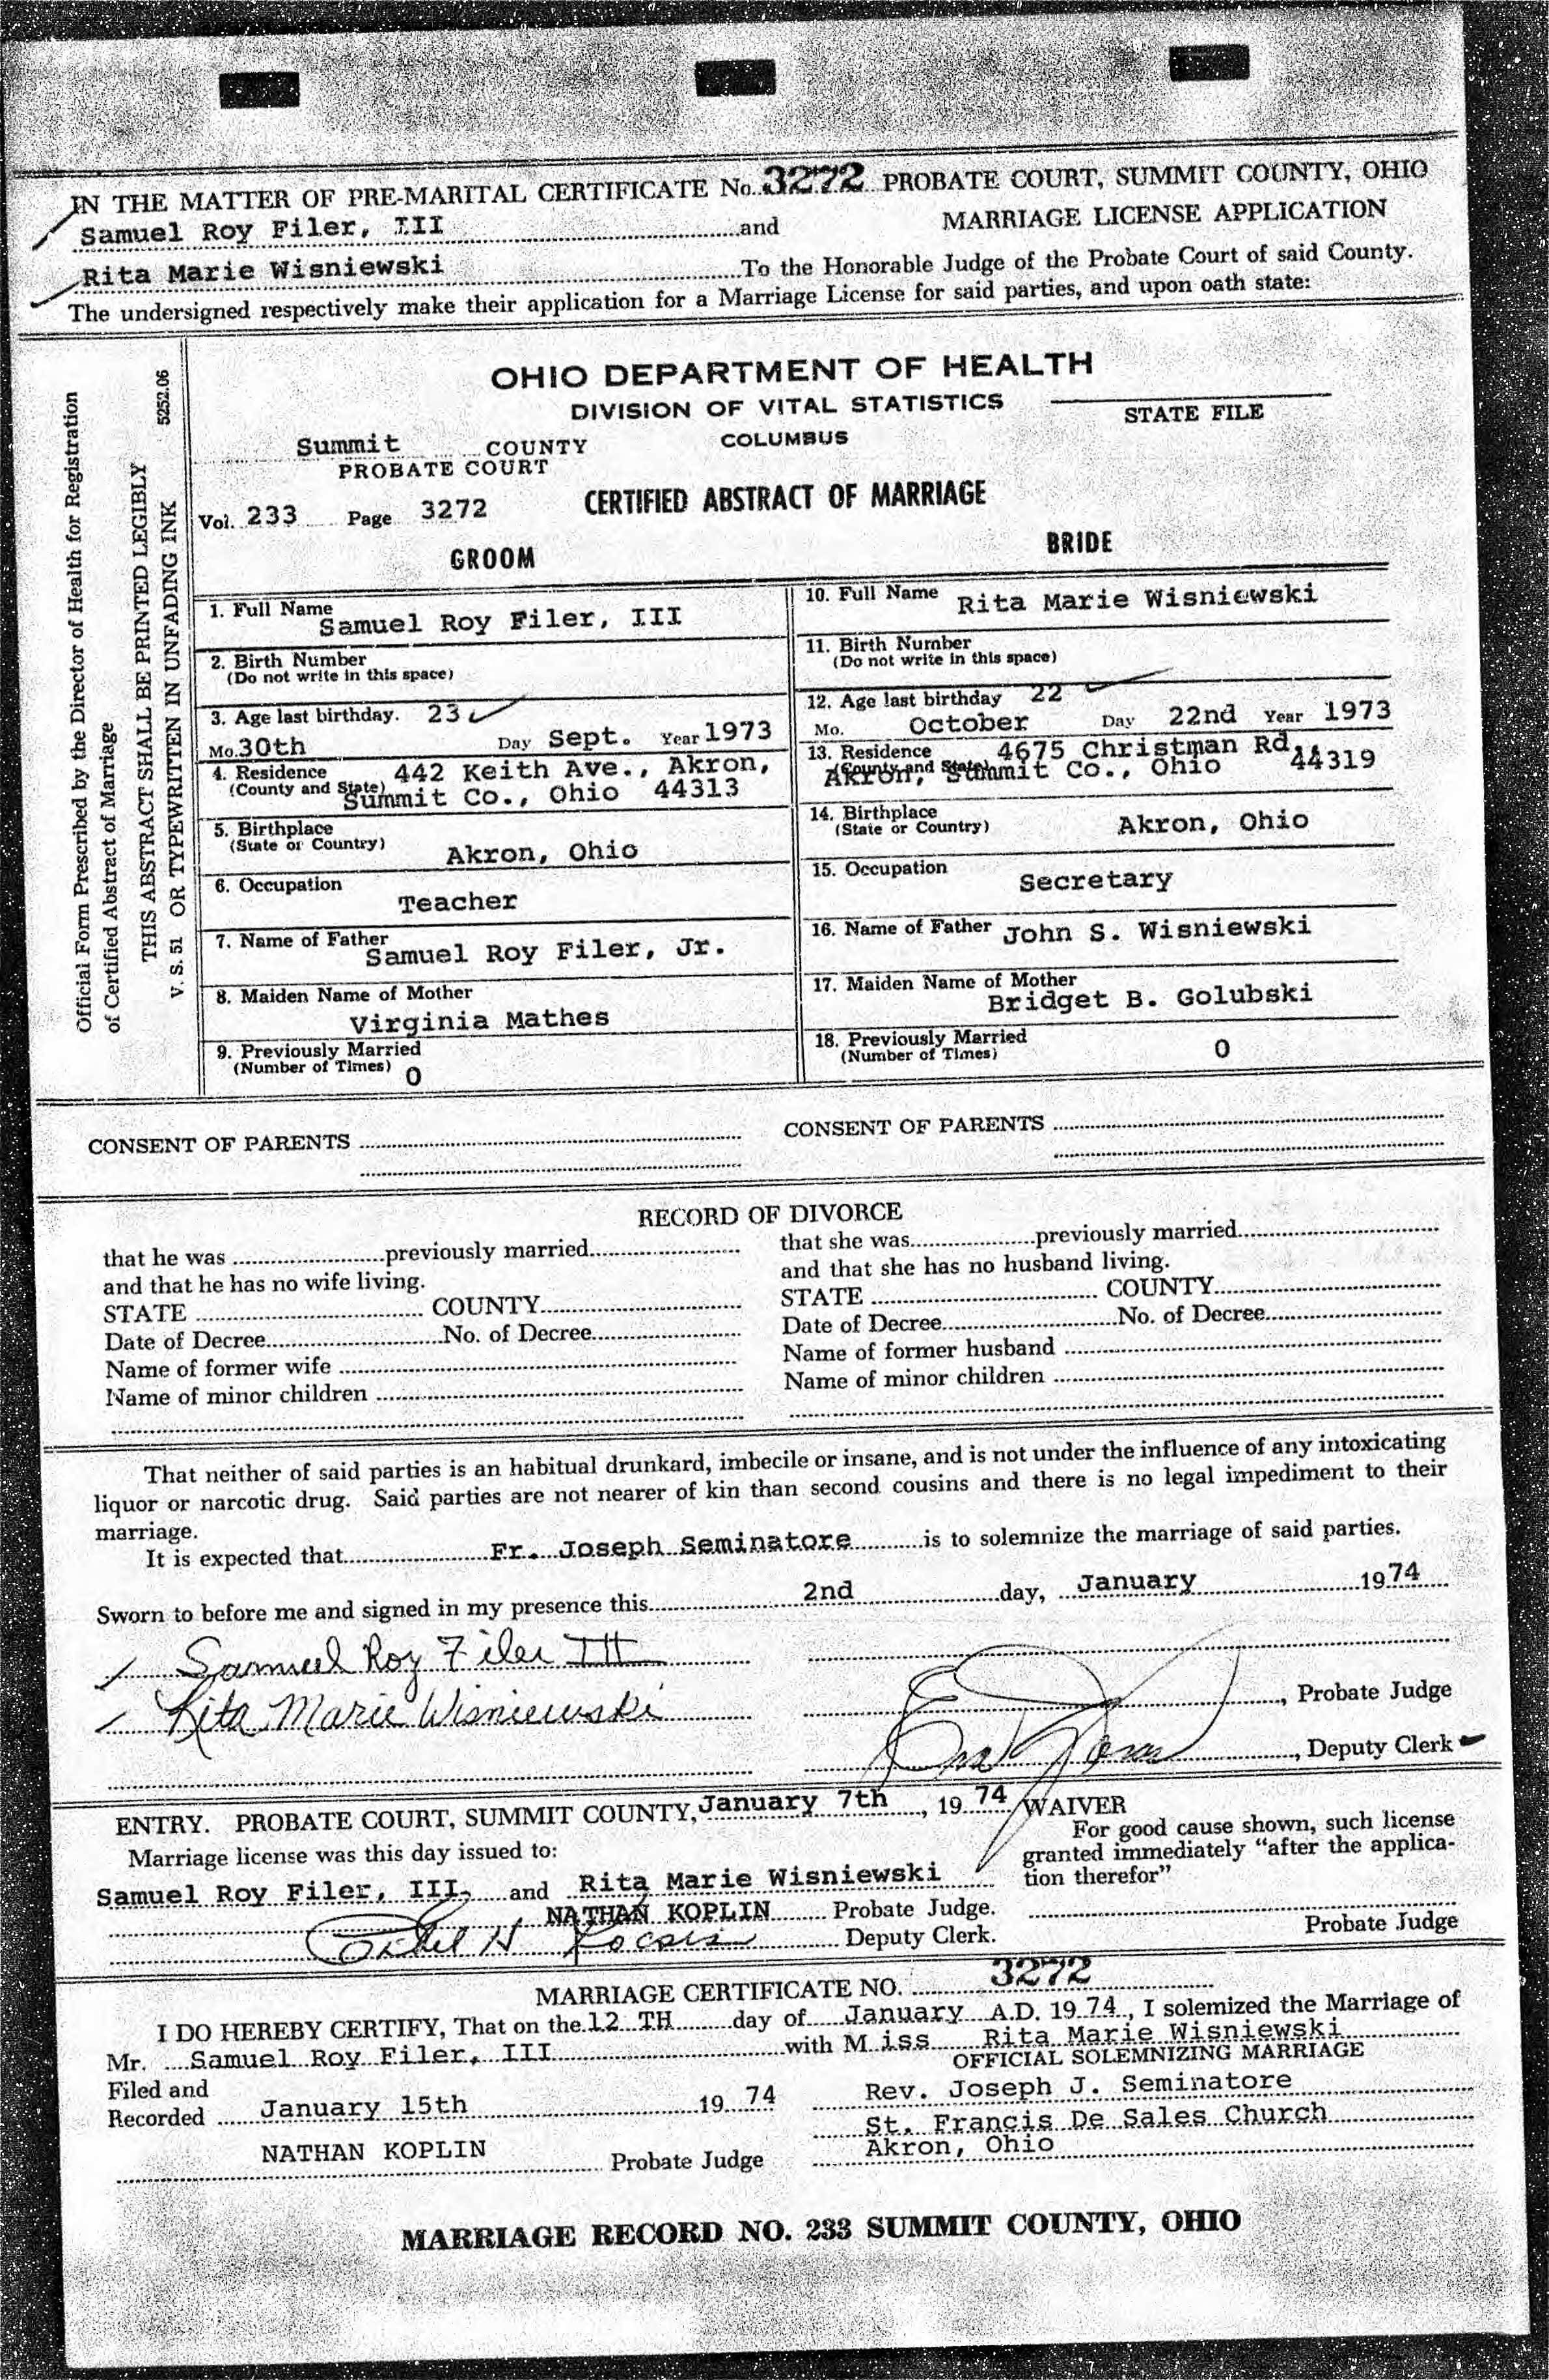 IN THE MATTER OF PRE-MARITAL CERTIFICATE No. 3272 PROBATE COURT, SUMMIT COUNTY, OHIO
Samuel Roy Filer, III and MARRIAGE LICENSE APPLICATION
Rita Marie Wisniewski To the Honorable Judge of the Probate Court of said County.
The undersigned respectively make their application for a Marriage License for said parties, and upon oath state:
Official Form Prescribed by the Director of Health for Registration
of Certified Abstract of Marriage
THIS ABSTRACT SHALL BE PRINTED LEGIBLY
V. S. 51 OR TYPEWRITTEN IN UNFADING INK 5252.06
OHIO DEPARTMENT OF HEALTH
DIVISION OF VITAL STATISTICS
STATE FILE
Summit COUNTY COLUMBUS
PROBATE COURT
Vol. 233 Page 3272 CERTIFIED ABSTRACT OF MARRIAGE
GROOM
1. Full Name
Samuel Roy Filer, III
2. Birth Number
(Do not write in this space)
3. Age last birthday. 23
Mo. 30th Day Sept. Year 1973
4. Residence 442 Keith Ave., Akron,
(County and State) Summit Co., Ohio 44313
5. Birthplace
(State or Country) Akron, Ohio
6. Occupation
Teacher
7. Name of Father
Samuel Roy Filer, Jr.
8. Maiden Name of Mother
Virginia Mathes
9. Previously Married
(Number of Times) 0
BRIDE
10. Full Name Rita Marie Wisniewski
11. Birth Number
(Do not write in this space)
12. Age last birthday 22
Mo. October Day 22nd Year 1973
13. Residence 4675 Christman Rd.,
(County and State) Akron, Summit Co., Ohio 44319
14. Birthplace
(State or Country) Akron, Ohio
15. Occupation
Secretary
16. Name of Father John S. Wisniewski
17. Maiden Name of Mother
Bridget B. Golubski
18. Previously Married
(Number of Times) 0
CONSENT OF PARENTS
CONSENT OF PARENTS
RECORD OF DIVORCE
that he was previously married
and that he has no wife living.
STATE COUNTY
Date of Decree No. of Decree
Name of former wife
Name of minor children
that she was previously married
and that she has no husband living.
STATE COUNTY
Date of Decree No. of Decree
Name of former husband
Name of minor children
That neither of said parties is an habitual drunkard, imbecile or insane, and is not under the influence of any intoxicating
liquor or narcotic drug. Said parties are not nearer of kin than second cousins and there is no legal impediment to their
marriage.
It is expected that Fr. Joseph Seminatore is to solemnize the marriage of said parties.
Sworn to before me and signed in my presence this 2nd day, January 1974
Samuel Roy Filer III
Rita Marie Wisniewski
, Probate Judge
, Deputy Clerk
ENTRY. PROBATE COURT, SUMMIT COUNTY, January 7th, 1974
Marriage license was this day issued to:
Samuel Roy Filer, III, and Rita Marie Wisniewski
NATHAN KOPLIN Probate Judge.
Deputy Clerk.
WAIVER
For good cause shown, such license
granted immediately "after the applica-
tion therefor"
Probate Judge
MARRIAGE CERTIFICATE NO. 3272
I DO HEREBY CERTIFY, That on the 12 TH day of January A.D. 1974, I solemized the Marriage of
Mr. Samuel Roy Filer, III with Miss Rita Marie Wisniewski
OFFICIAL SOLEMNIZING MARRIAGE
Filed and
Recorded January 15th 1974
NATHAN KOPLIN Probate Judge
Rev. Joseph J. Seminatore
St. Francis De Sales Church
Akron, Ohio
MARRIAGE RECORD NO. 233 SUMMIT COUNTY, OHIO